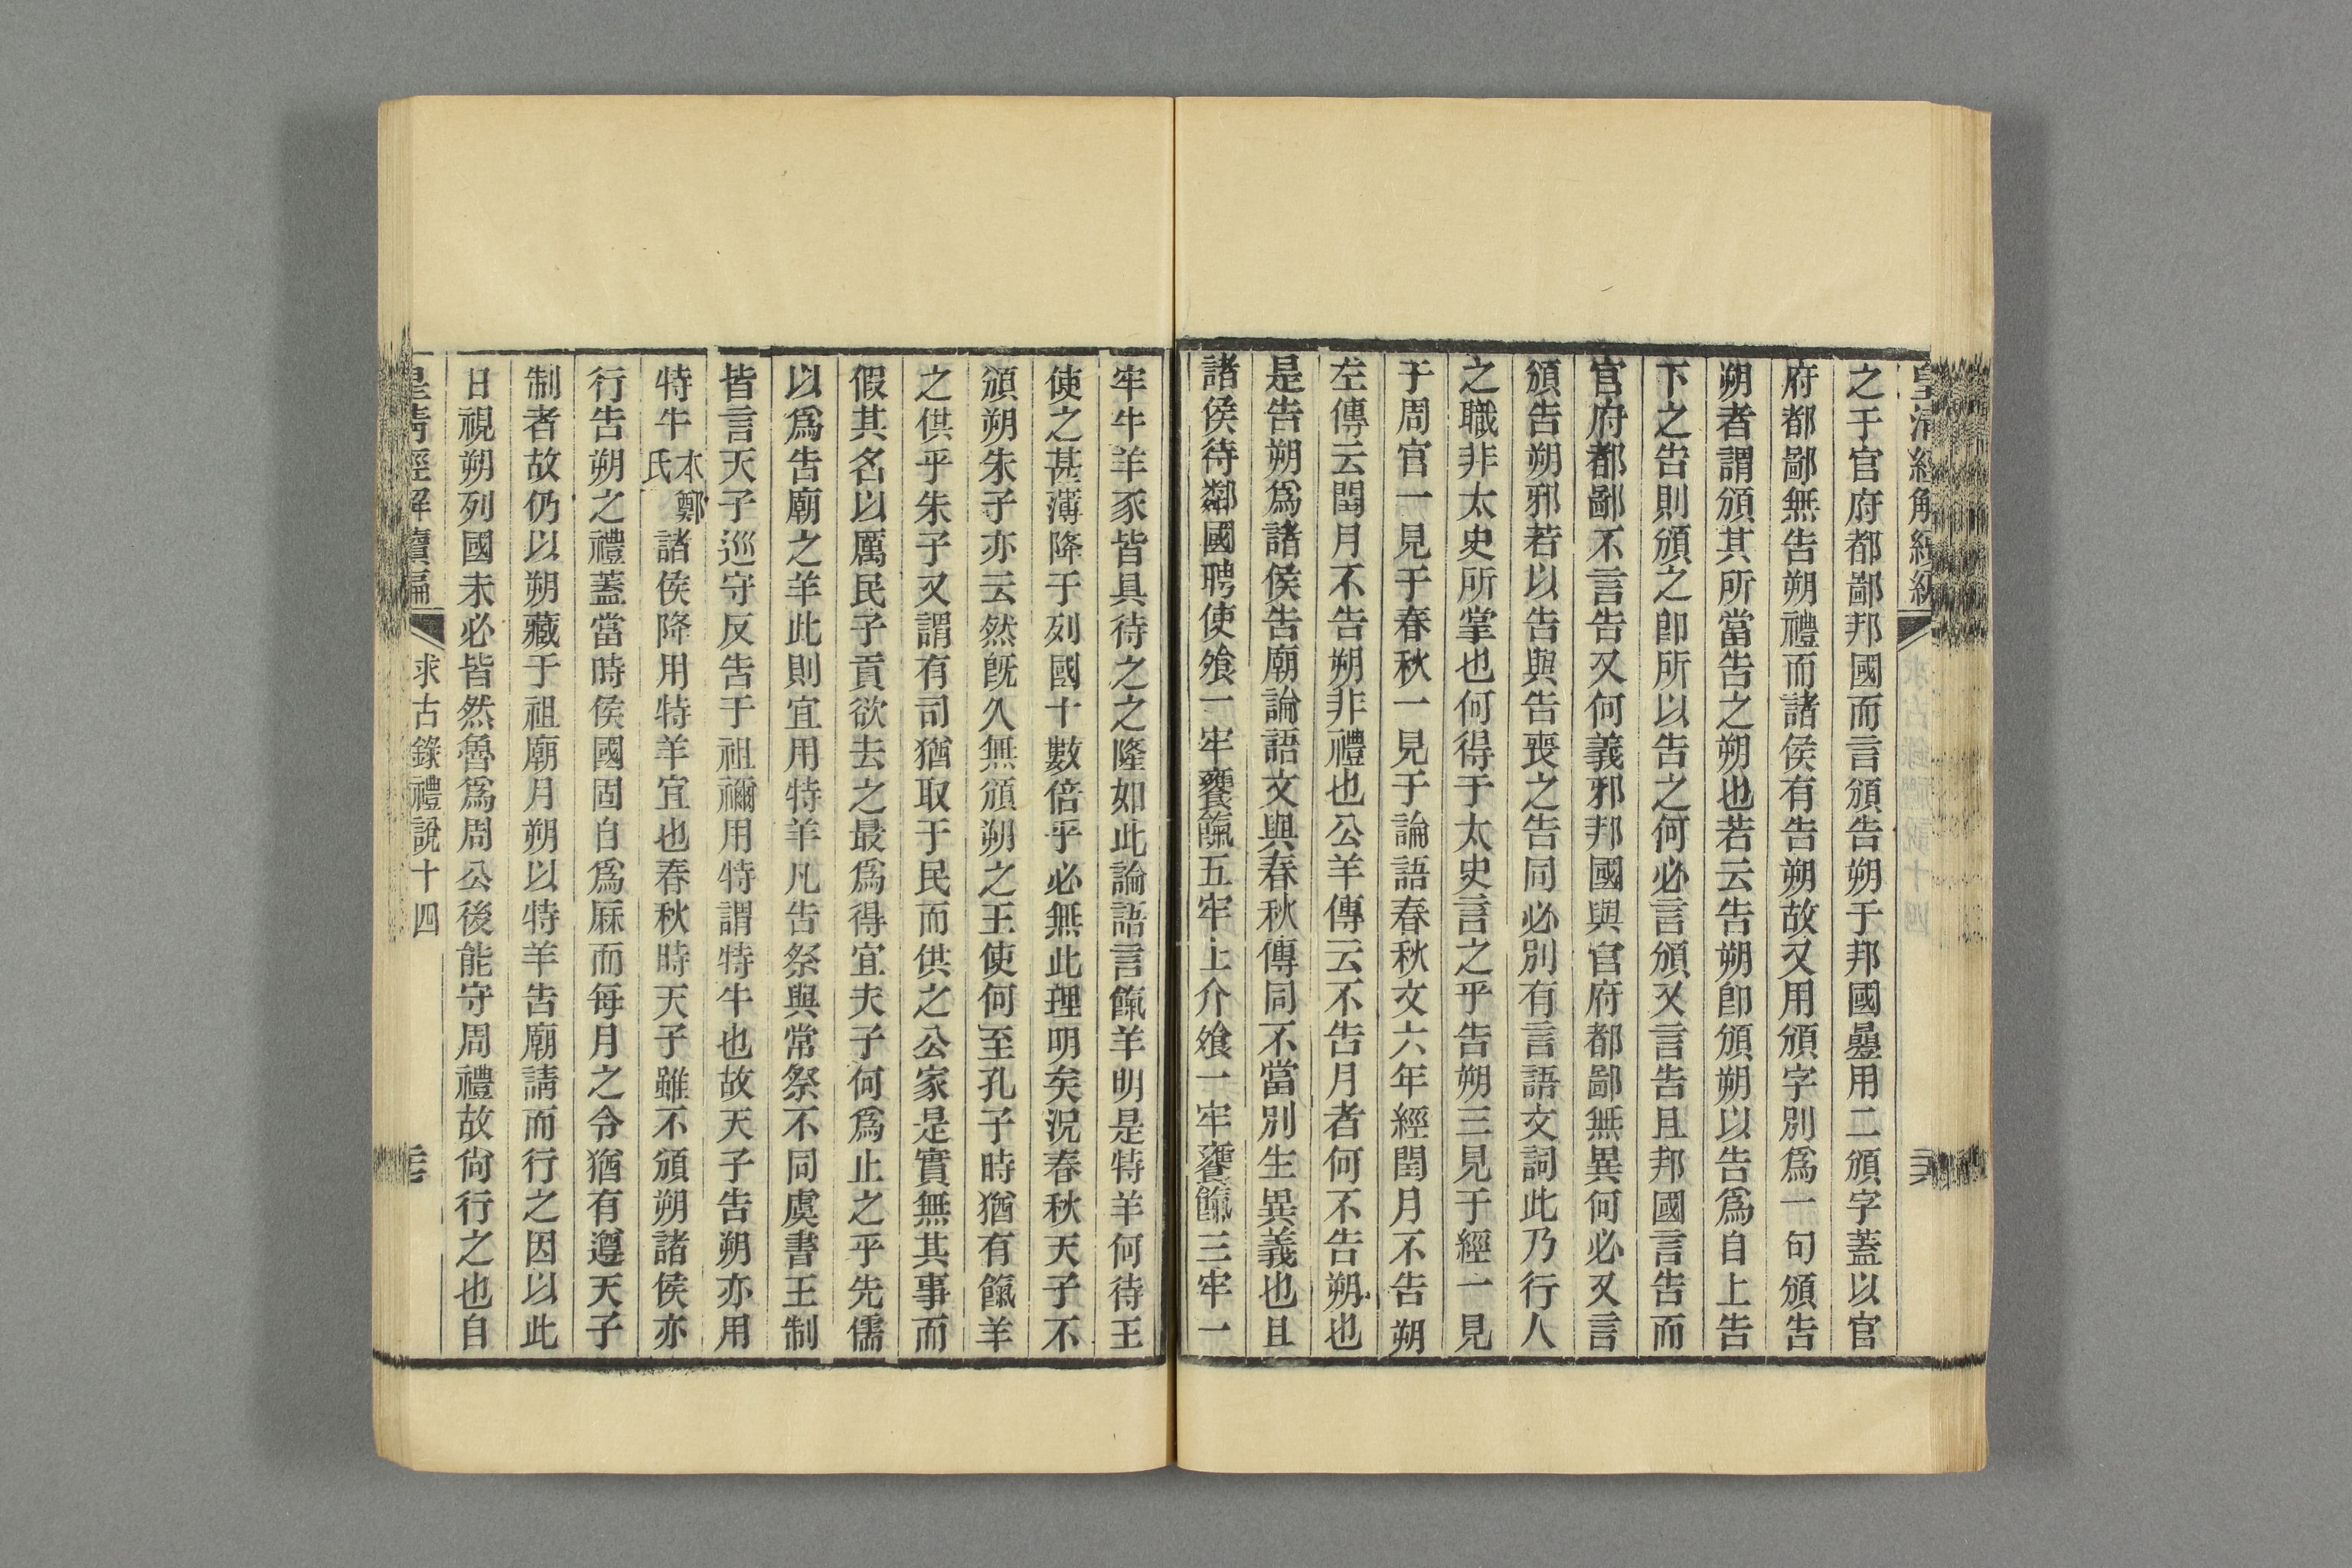 皇清經解續編
之于官府都鄙邦國而言頒告朔于邦國㬪用二頒字蓋以官
府都鄙無告朔禮而諸侯有告朔故又用頒字別爲一句頒告
朔者謂頒其所當告之朔也若云告朔卽頒朔以告爲自上告
下之告則頒之卽所以告之何必言頒又言告且邦國言告而
官府都鄙不言告又何義邪邦國與官府都鄙無異何必又言
頒告朔邪若以告與告喪之告同必別有言語文詞此乃行人
之職非太史所掌也何得于太史言之乎告朔三見于經一見
于周官一見于春秋一見于論語春秋文六年經閏月不告朔
左傳云閏月不告朔非禮也公羊傳云不告月者何不告朔也
是告朔爲諸侯告廟論語文與春秋傳同不當別生異義也且
諸侯待鄰國聘使飧一牢饔餼五牢上介飧一牢饔餼三牢一
牢牛羊豕皆具待之之隆如此論語言餼羊明是特羊何待王
使之甚薄降于列國十數倍乎必無此理明矣況春秋天子不
頒朔朱子亦云然旣久無頒朔之王使何至孔子時猶有餼羊
之供乎朱子又謂有司猶取于民而供之公家是實無其事而
假其名以厲民子貢欲去之最爲得宜夫子何爲止之乎先儒
以爲告廟之羊此則宜用特羊凡告祭與常祭不同虞書王制
皆言天子巡守反告于祖禰用特謂特牛也故天子告朔亦用
特牛本鄭氏諸侯降用特羊宜也春秋時天子雖不頒朔諸侯亦
行告朔之禮蓋當時侯國固自爲厤而每月之令猶有遵天子
制者故仍以朔藏于祖廟月朔以特羊告廟請而行之因以此
日視朔列國未必皆然魯爲周公後能守周禮故尙行之也自
皇清經解續編 求古錄禮說十四